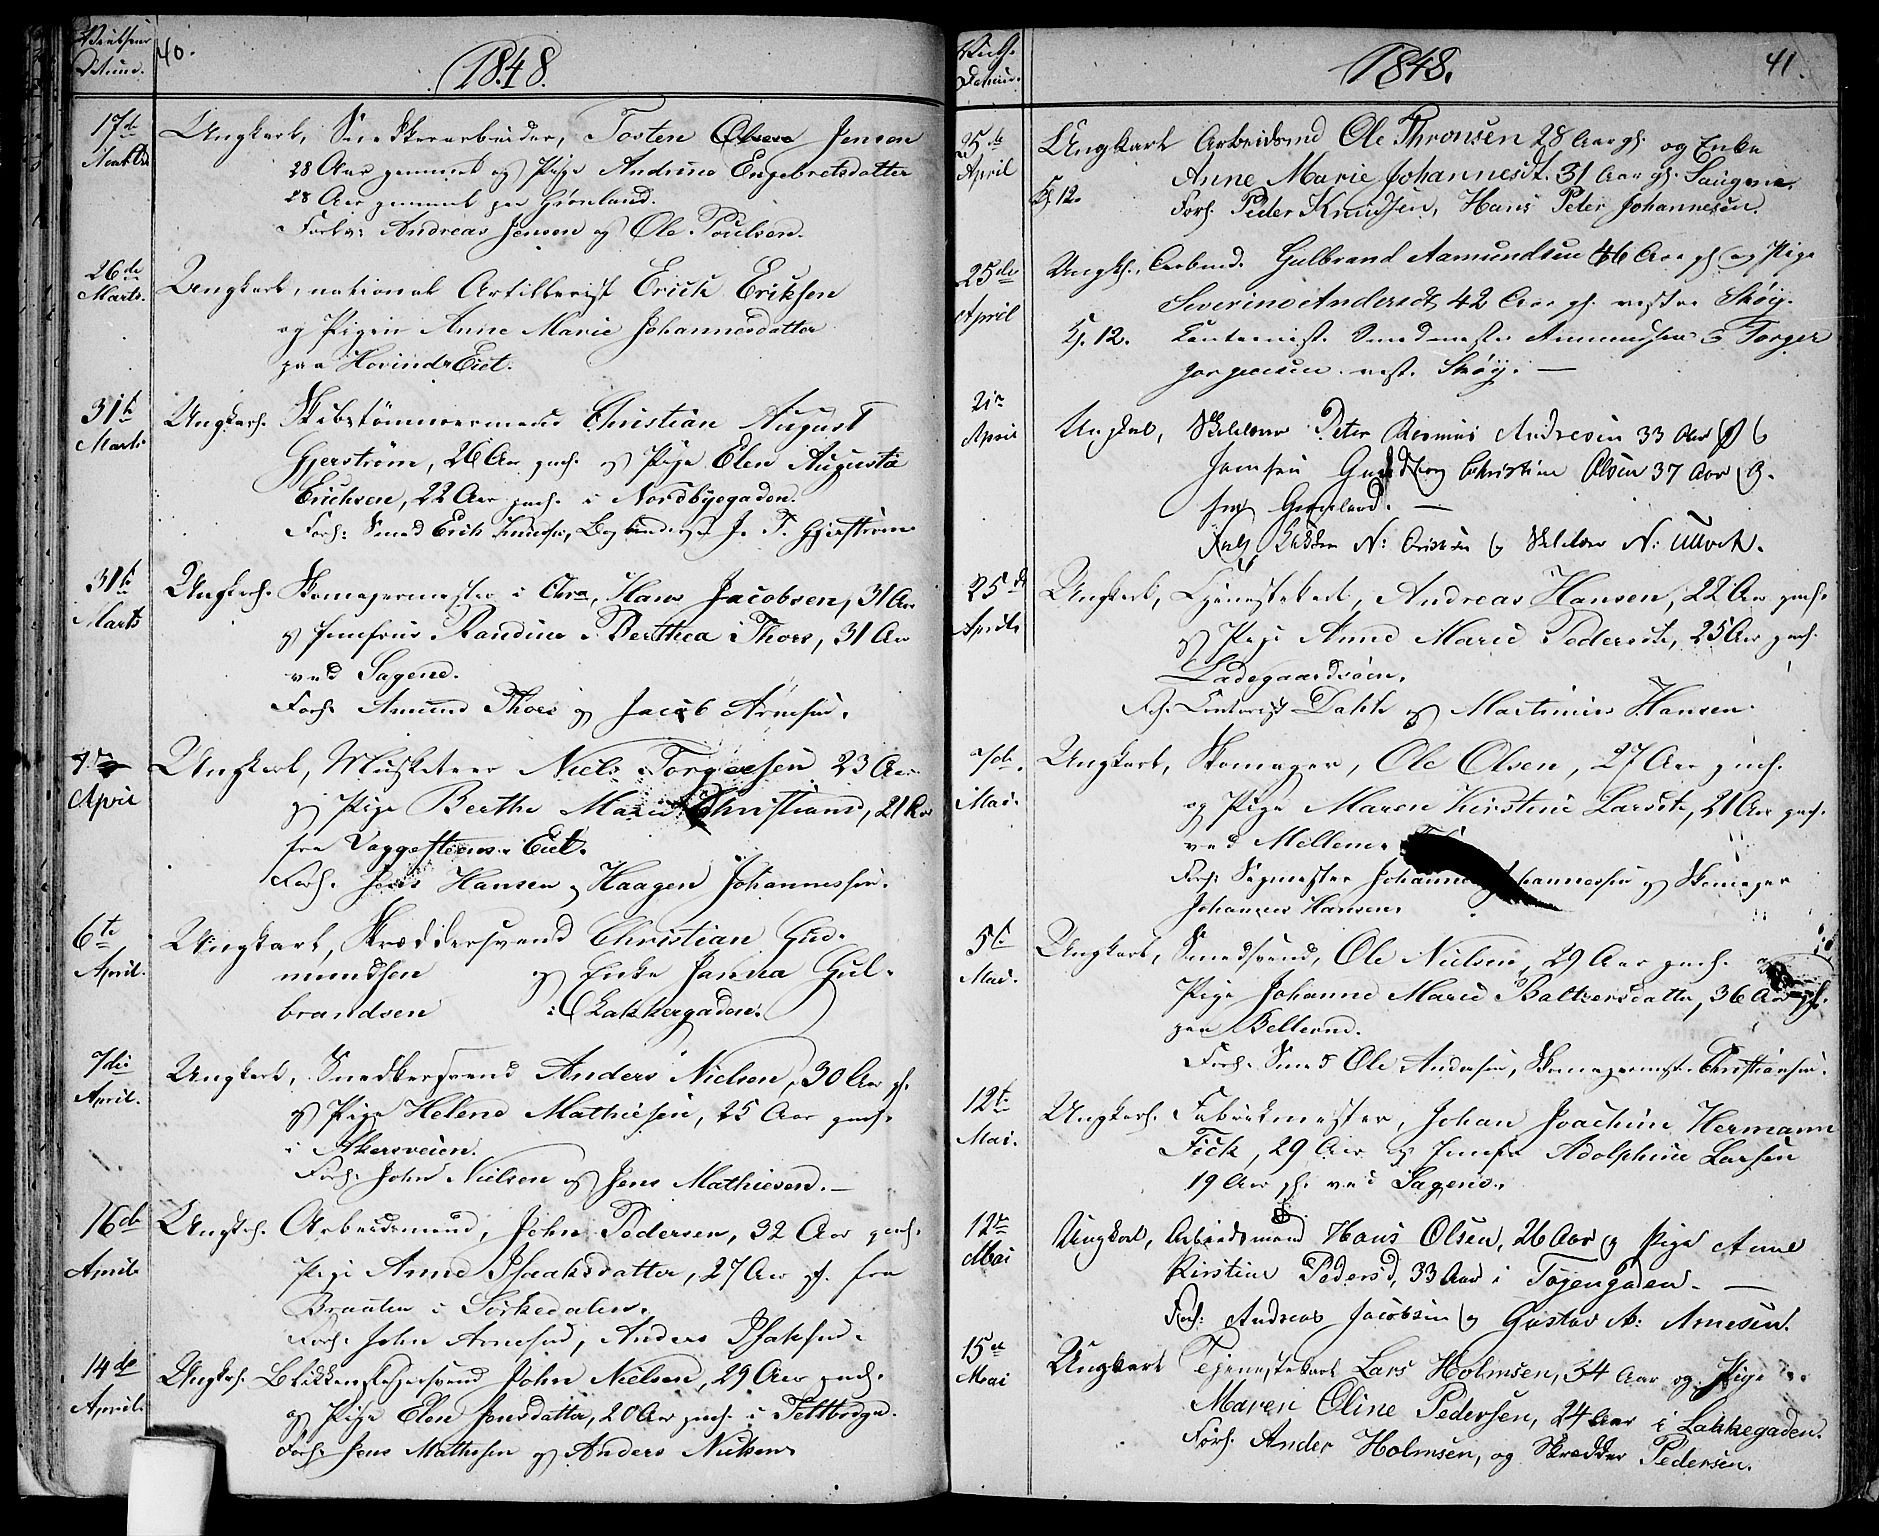 40.
1848.
17de Marts
Ungkarl, Snedkerarbeider, Torsten Olsen Jensen
28 Aar gammel og Pige Andrine Engebretsdatter
28 Aar gammel paa Grønland.
Forl: Andreas Jensen og Ole Poulsen.
26de Marts.
Ungkarl, national Artillerist Erick Eriksen
og Pigen Anne Marie Johannesdatter
paa Hovinds Eiet.
31te Marts
Ungkarl. Skibstømmermand Christian August
Gjerstrøm, 26 Aar gml. og Pige Elen Augusta
Erichsen, 22 Aar gml. i Nordbygaden.
Forl: Smed Erik Knudsen, Bogbinder J. T. Gjerstrøm
31te Marts
Ungkarl. Skomagermester i Chra, Hans Jacobsen, 31 Aar
og Jomfrue Randine Berthea Thors, 31 Aar
ved Sagene.
Forl. Amund Thors og Jacob Arnesen.
April
Ungkarl, Musketeer Niels Torgersen 23 Aar
og Pige Berthe Marie Christians, 21 Aar
fra Vaggesteens Eiet.
Forl. Jens Hansen og Haagen Johannessen.
6te April.
Ungkarl, Skræddersvend Christian Gud-
mundsen og Enke Janna Gul-
brandsen i Lakkergaden.
7de April.
Ungkarl, Snedkersvend Anders Nielsen, 30 Aar gl.
og Pige Helene Mathiesen, 25 Aar gml.
i Akersveien.
Forl. John Nielsen og Jens Mathiesen. —
16de April
Ungkl. Arbeidsmand, John Pedersen, 32 Aar gml.
Pige Anne Isaaksdatter, 27 Aar gl. fra
Braaten i Sørkedalen.
Forl. John Arnesen, Anders Isaksen.
14de April
Ungkl. Blikkenslagersvend John Nielsen, 29 Aar gml.
og Pige Elen Jensdatter, 20 Aar gml. i Teltbrya.
Forl. Jens Mathisen og Anders Nielsen
1848.
41.
25de April
Kl 12.
Ungkarl Arbeidsmd Ole Thronsen 28 Aar gl. og Enke
Anne Marie Johannesdt. 31 Aar gl. Saugene.
Forl. Peder Knudsen, Hans Peter Johannesen.
25de April
Kl. 12.
Ungk., Arbmd. Gulbrand Aamundsen 46 Aar gl. og Pige
Severine Andersdt, 42 Aar gl. vestre Skøy.
Smedmester Ammundsen & Torger
Jorgensen vest. Skøy. —
21de April
Ungkarl, Peter Rasmus Andresen 33 Aar og
Jomfru Christine Olsen 37 Aar g.
paa Grønland. —
Forl. N: og N: Ulvik.
25de April
Ungkarl, Tjenestekarl, Andreas Hansen, 22 Aar gml.
og Pige Anne Marie Pedersdt, 25 Aar gml.
Ladegaardsøen.
Fl. Dahl og Martinius Hansen.
7de Mai.
Ungkarl, Skomager, Ole Olsen, 27 Aar gml.
og Pige Maren Kirstine Larsdt, 21 Aar gml.
ved Møllene.
Forl: Johannes Johannessen og Skomager
Johannes Hansen.
5te Mai.
Ungkarl, Smedsvend, Ole Nielsen, 29 Aar gml. og
Pige Johanne Marie Baltzersdatter, 36 Aar gl.
paa Bellerud.
Forl. Smed Ole Andersen, Skomagermst. Christiansen.
12te Mai.
Ungkarl. Fabrikmester, Johan Joachim Hermann
Fick, 29 Aar og Jomfr Adolphine Larsen
19 Aar gl. ved Sagene.
12te Mai
Ungkarl, Arbeidsmand Hans Olsen, 26 Aar og Pige Anne
Kirstine Pedersd, 33 Aar i Tøyengaden. —
Forl: Andreas Jacobsen og Gustav A: Arnesen.
15de Mai
Ungkarl Tjenestekarl Lars Holmsen, 34 Aar og Pige
Maren Oline Pedersen, 24 Aar i Lakkegaden.
Forl. Ander Holmsen, og Skrædder Pedersen.